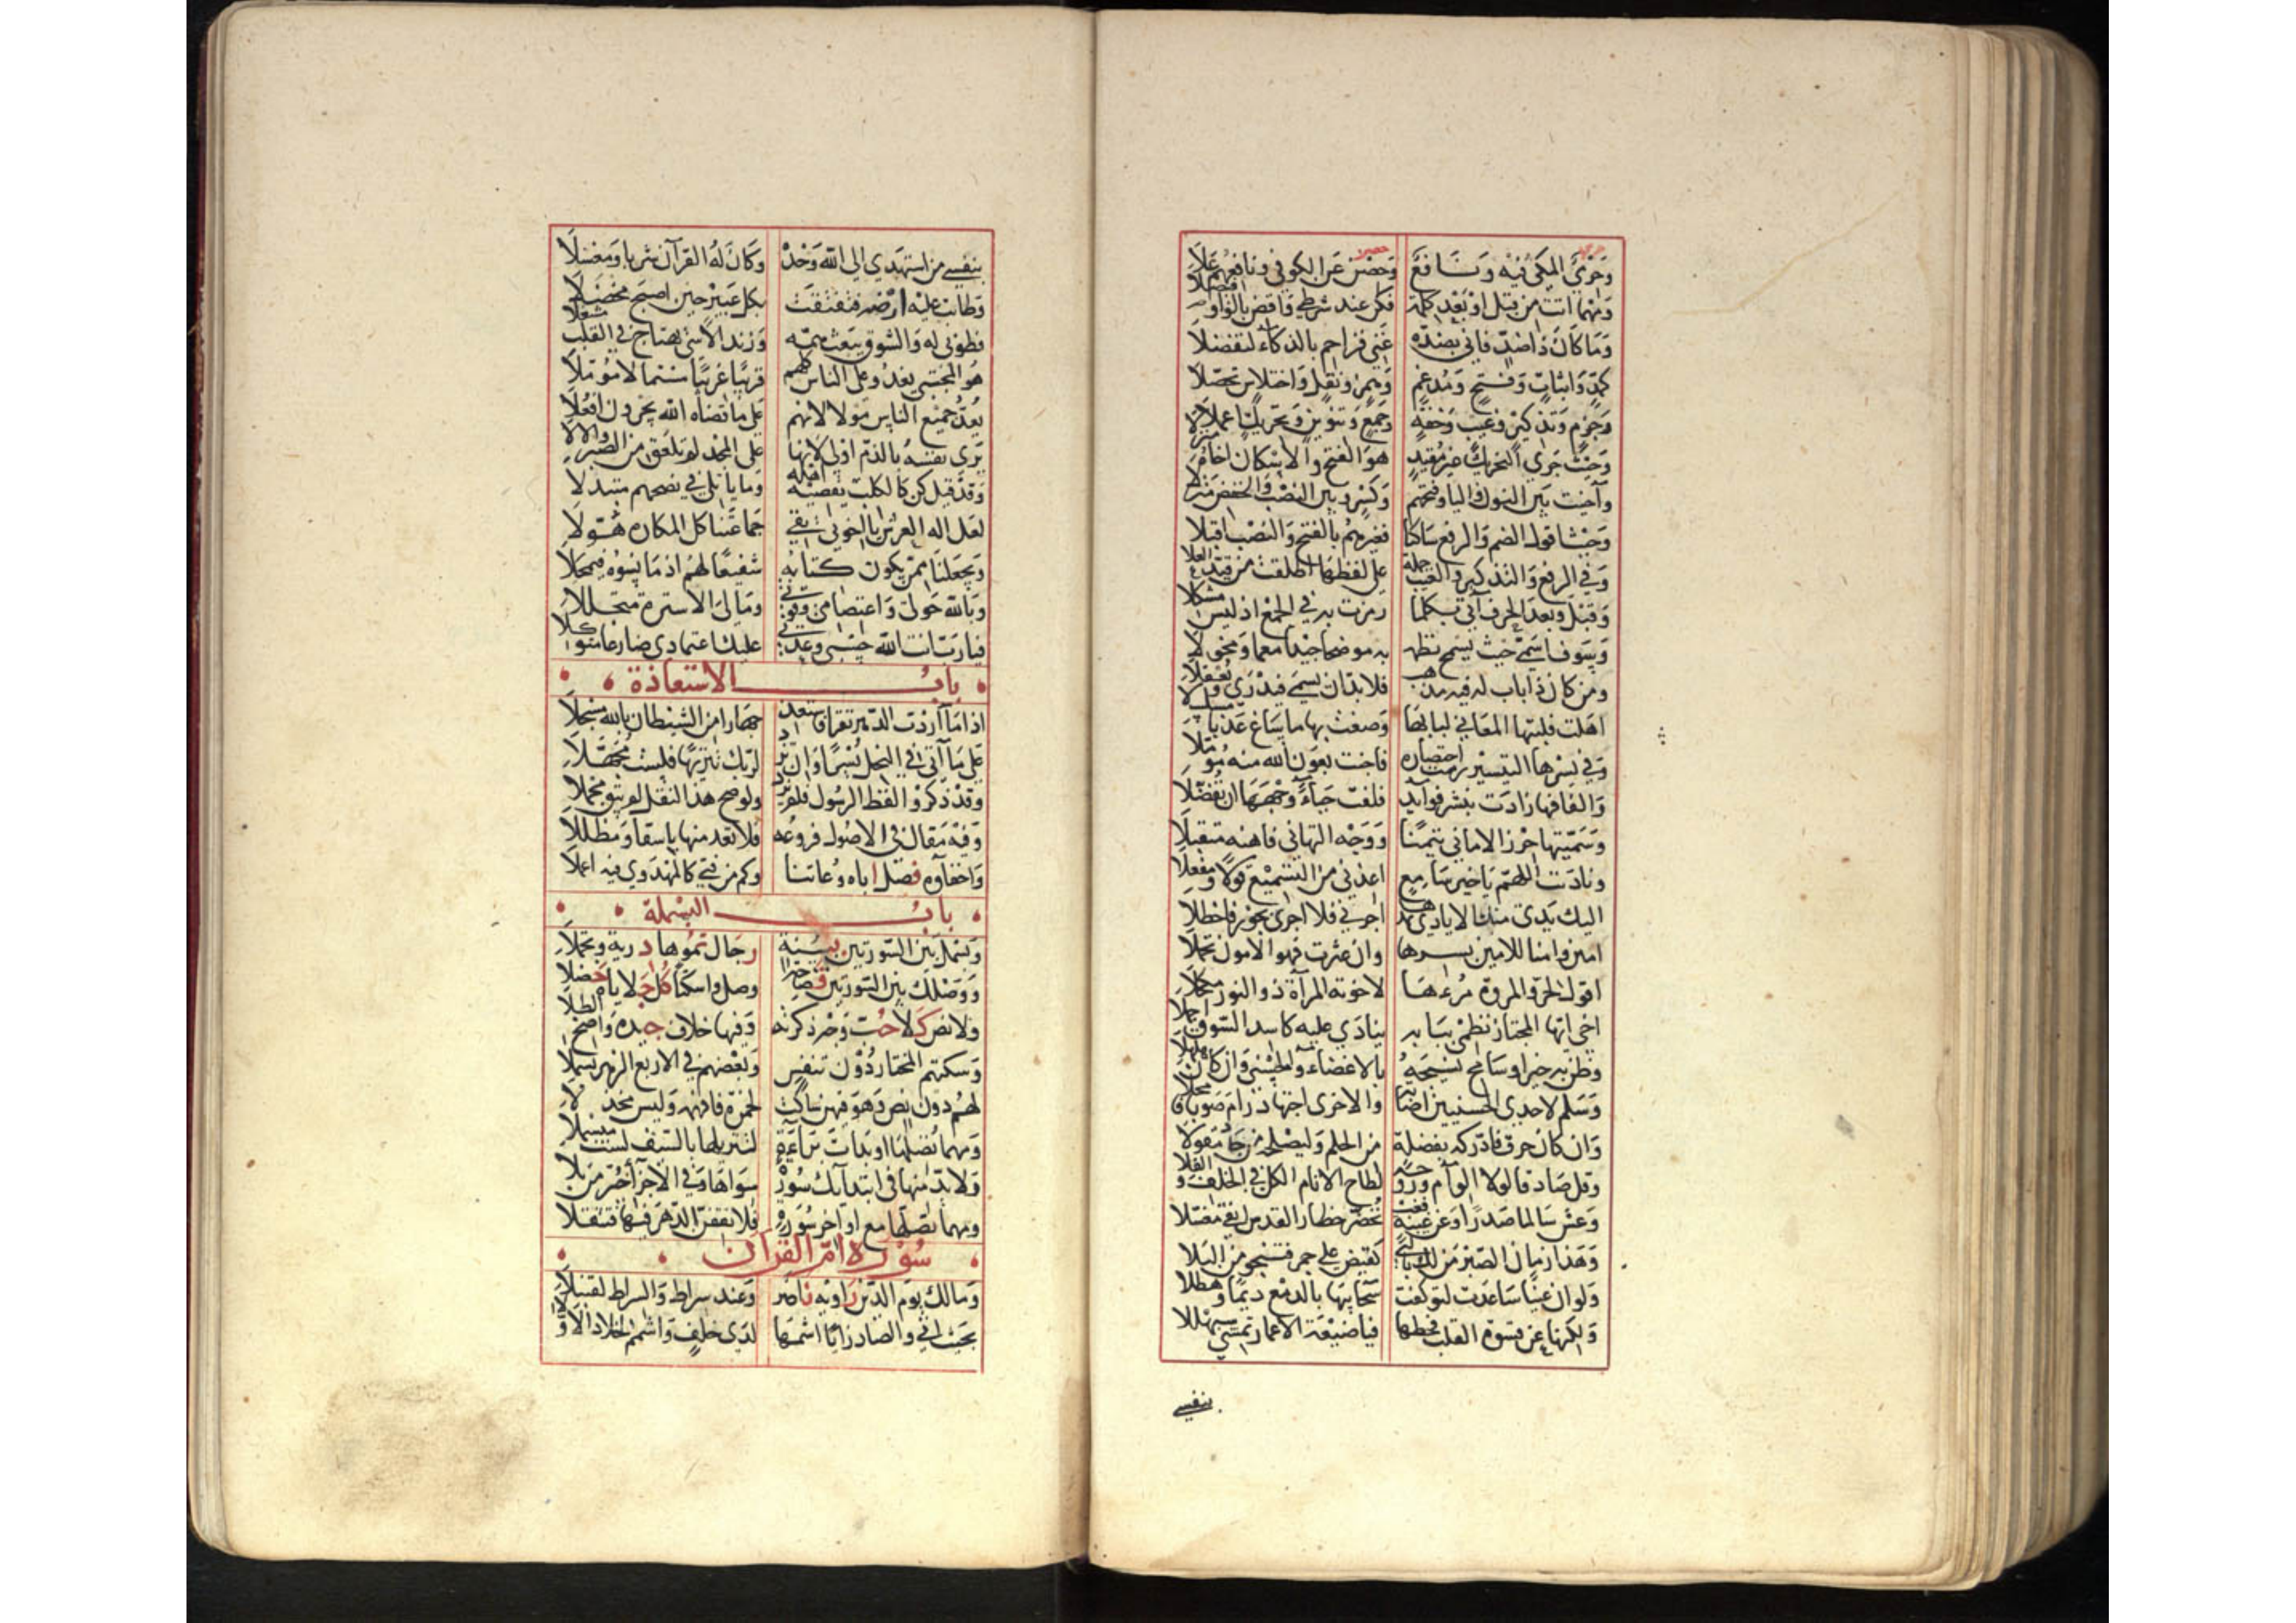 وَحِرْمِيٌّ المكى فيه وَنَافع وَحصْن عَن الكوفى ونافعهم عَلَا
وَمَهْمَا اتت من قبل اوْ بَعْد كلمة فكن عند شرطى وَاقض بالوَاو فيصلا
وَمَا كَانَ ذَا ضدّ فانى بضدّه غَنى فزاحم بالذكاء لتفضلَا
كمدّ وَاثبات وَفتح وَمُدغم وَهمز ونقل وَاختلاس تحصّلا
وَجزم وَتذكير وغيب وَخفّة وَجمع وَتنوين وَتحريك اعملا
وَحَيْث جَرى التحريك غير مقيد هوَ الفتح وَالاسكان اخاه منزلا
وآخيت بين النون واليا وفتحهم وَكسر وبين النصْب وَالخفض منزلا
وَحَيْث اقول الضم وَالرفع سَاكتا فغيرهُم بالفتح وَالنصْب اقبلا
وَفى الرفع وَالتذكير والغيب جملة على لفظها اطلقت من قيد العلا
وَقبْل وبعد الحرف آتى بكلما رمزت به فى الجمْع اذ ليس مشكلا
وَسَوف اسمّى حيث يسمح نظمه به موضحا جيدا معما ومخولا
ومن كان ذا باب له فيه مذهب فلا بدّ ان يسمى فيدرى ويعقلا
اهلت فلبتها المعانى لبابها وَصغت بها ما سَاغ عَذبا مسلسلا
وَفى يُسْرها التيسير رمت اختصاره فاجنت بعَون الله منه مؤملا
وَالفافها زادت بنشر فوائد فلفت حَيَآءً وجهها ان تفضلا
وَسَمّيتها حرز الامانى تيمنا وَوَجْه التهانى فاهنه متقبلا
ونادَيت اللهمّ يَا خير سَامع اعذنى من التسْميع قولا ومفعلا
اليك يَدى منك الايادى تمدها اجرنى فلا اجرى بجور فاخطلا
امين وامنا للامين بسرها وان عثرت فهو الامون تحملا
اقول لحرّ والمروة مرءها لاخوته المرآة ذو النور مكحلا
اخى ايها المجتاز نظمى ببابه ينادَى عليه كاسد السّوق اجملا
وظن به خيرا وسَامح نسيجه بالاغضاء وَالحسنى وَان كان هلهلا
وَسَلم لاحدى الحسنيين اصابة والاخرى اجتهاد رَام صَوبا فامحلا
وَان كان خرق فادّركه بفضلة من الحلم وَليصْلحه من جاد مقولا
وقل صَادقا لولا الوآم وروحه لطاح الانام الكل فى الخلف والقلا
وَعش سَالما صَدرًا وعن غيبة فغب تحضّر حظار القدس انقى مغسلا
وَهَذا زمان الصّبْر مَن لك بالتى كقبض على جمر فتنجو من البَلا
وَلو ان عَيْنًا سَاعدَت لتوكفت سَحَايبها بالدمع ديمًا وَهطلا
وَلكنها عن قسوة القلب قحطها فياضيْعَة الاعمار تمشى سبهللا
بنفسى
بنفسِى من استهدى الى الله وَحْدهُ وَكانَ لهُ القرآن شربا وَمغسَلا
وطابت عليْه ارْضه فتفتقت بكل عَبير حين اصبح مخضلا
فطوبى له وَالشوق يبعَث همّه وَزند الاسى يهتاج فى القلب مشعلا
هوَ المجتبى يغدُو على الناس كلهم قريبًا غريبًا مستمالا مؤملا
يَعُدّ جميع الناس مَولى لانهم عَلى ما قضاه الله يجرون افعلا
يَرى نفسَهُ بالذمّ اولى لانها على المجد لم تلعق من الصّبر والالا
وَقد قيل كن كالكلب يقصيه اهله وما يأتلى فى نصحهم متبذلا
لعَل اله العرْش يا اخوتى يقى جماعتنا كل المكاره هُوّلا
وَيجعلنا ممّن يكون كتابه شفيعًا لهُم اذ مَا نسُوه فيمحلا
وَبالله حَولى وَاعتصامى وقوتى ومَالى الا ستره متجللا
فيا رَبّ انت الله حسبى وعدّتى عليك اعتمادى ضارعا متوكلا
بابُ الاستعاذة
اذا مَا ارَدْت الدّهر تقرا فاستعذ جهارا من الشيطان بالله مسجلَا
عَلى مَا اتى فى النحل يُسْرًا وَان تزد لربّك تنزيهًا فلسْت مجهّلا
وقدْ ذكرُوا لفظ الرسُول فلم يزد ولو صح هذا النقل لم يبق مجملا
وَفيْه مَقال فى الاصُول فروعُه فلا تعد منها باسقا وَمظللا
وَاخفآؤه فصْل اباه وُعاتنا وكم من فتى كالمهدَوى فيه اعملا
بابُ البسْملة
وَبَسْمَل بَيْن السّورتين بسُنة رجَال نمَوها درية وتحملا
وَوَصْلك بيْن السّورَتين فصَاحة وصل واسكتا كل جلايَاه حصّلا
ولا نص كلا حُبّ وَجه ذكرته وَفيها خلاف جيده وَاضح الطلا
وَسكتهم المختار دُوْن تنفس وَبعْضهم فى الاربع الزهر بسْملا
لهُم دون نصّ وَهوَ فيهن سَاكت لحمزة فافهمه وَليس مخذلا
وَمهما تصلها او بَدأت بَرآءَة لتنزيلها بالسّيف لست مبسملا
وَلا بدّ منها فى ابتدآئك سُورة سوَاها وَفى الاجزآء خيّر من تلا
ومهما تصلها مع اواخر سُورة فلا تقفن الدّهر فيها فتثقلا
سُوْرة امّ القرآن
وَمالك يوْم الدّين رَاويه نَاصر وَعند سراط وَالسراط لقنبلا
بحيث اتى والصاد زايا اشمّها لدَى خلفٍ وَاشمم لخلاد الاوّلا